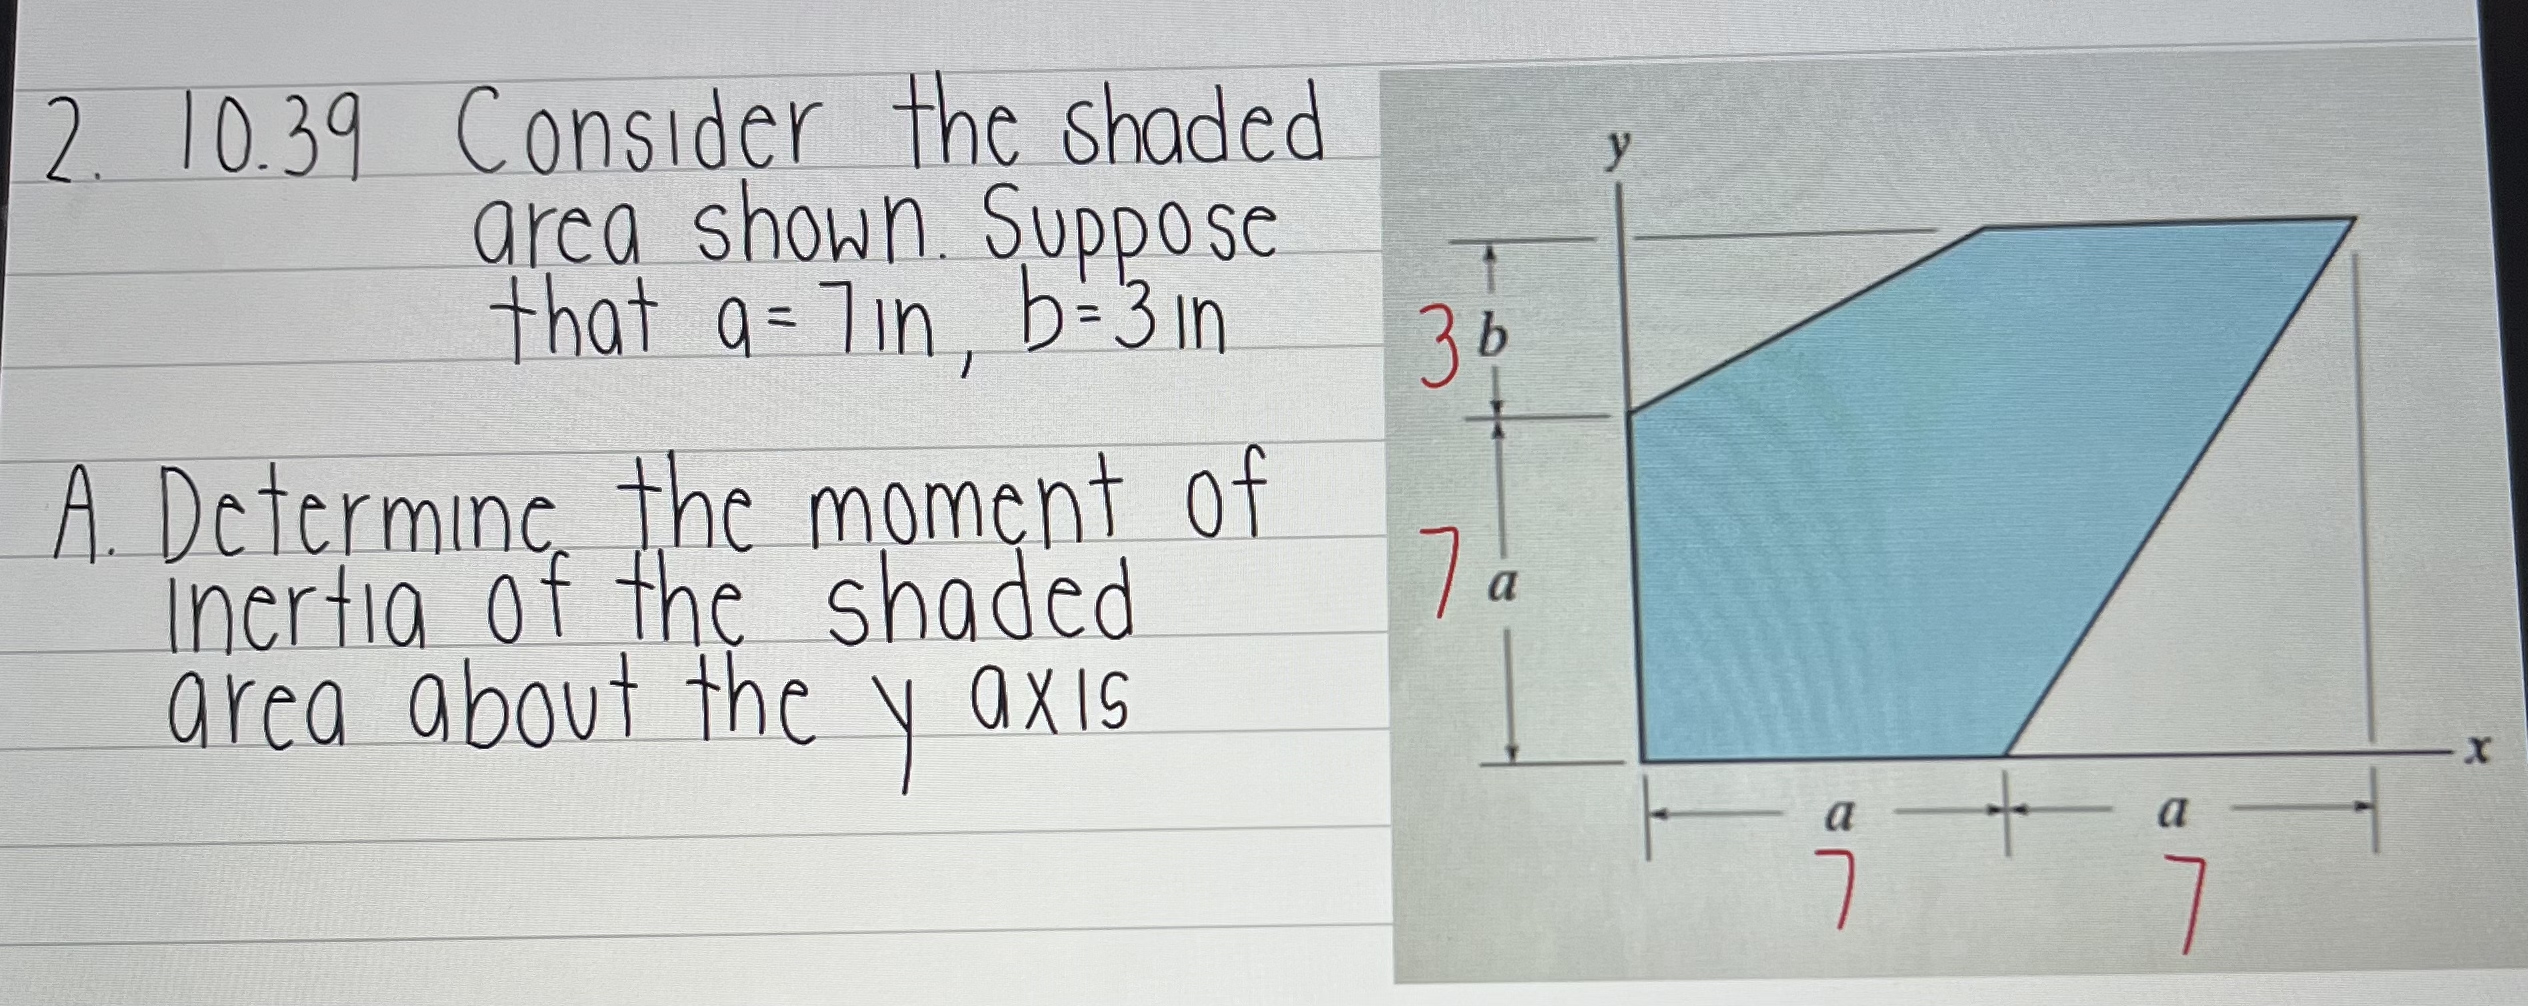 2. 10.39 Consider the shaded
area shown. Suppose
that a = 7 in, b = 3 in
A. Determine the moment of
inertia of the shaded
area about the y axis
y
3 b
7 a
x
a a
7 7